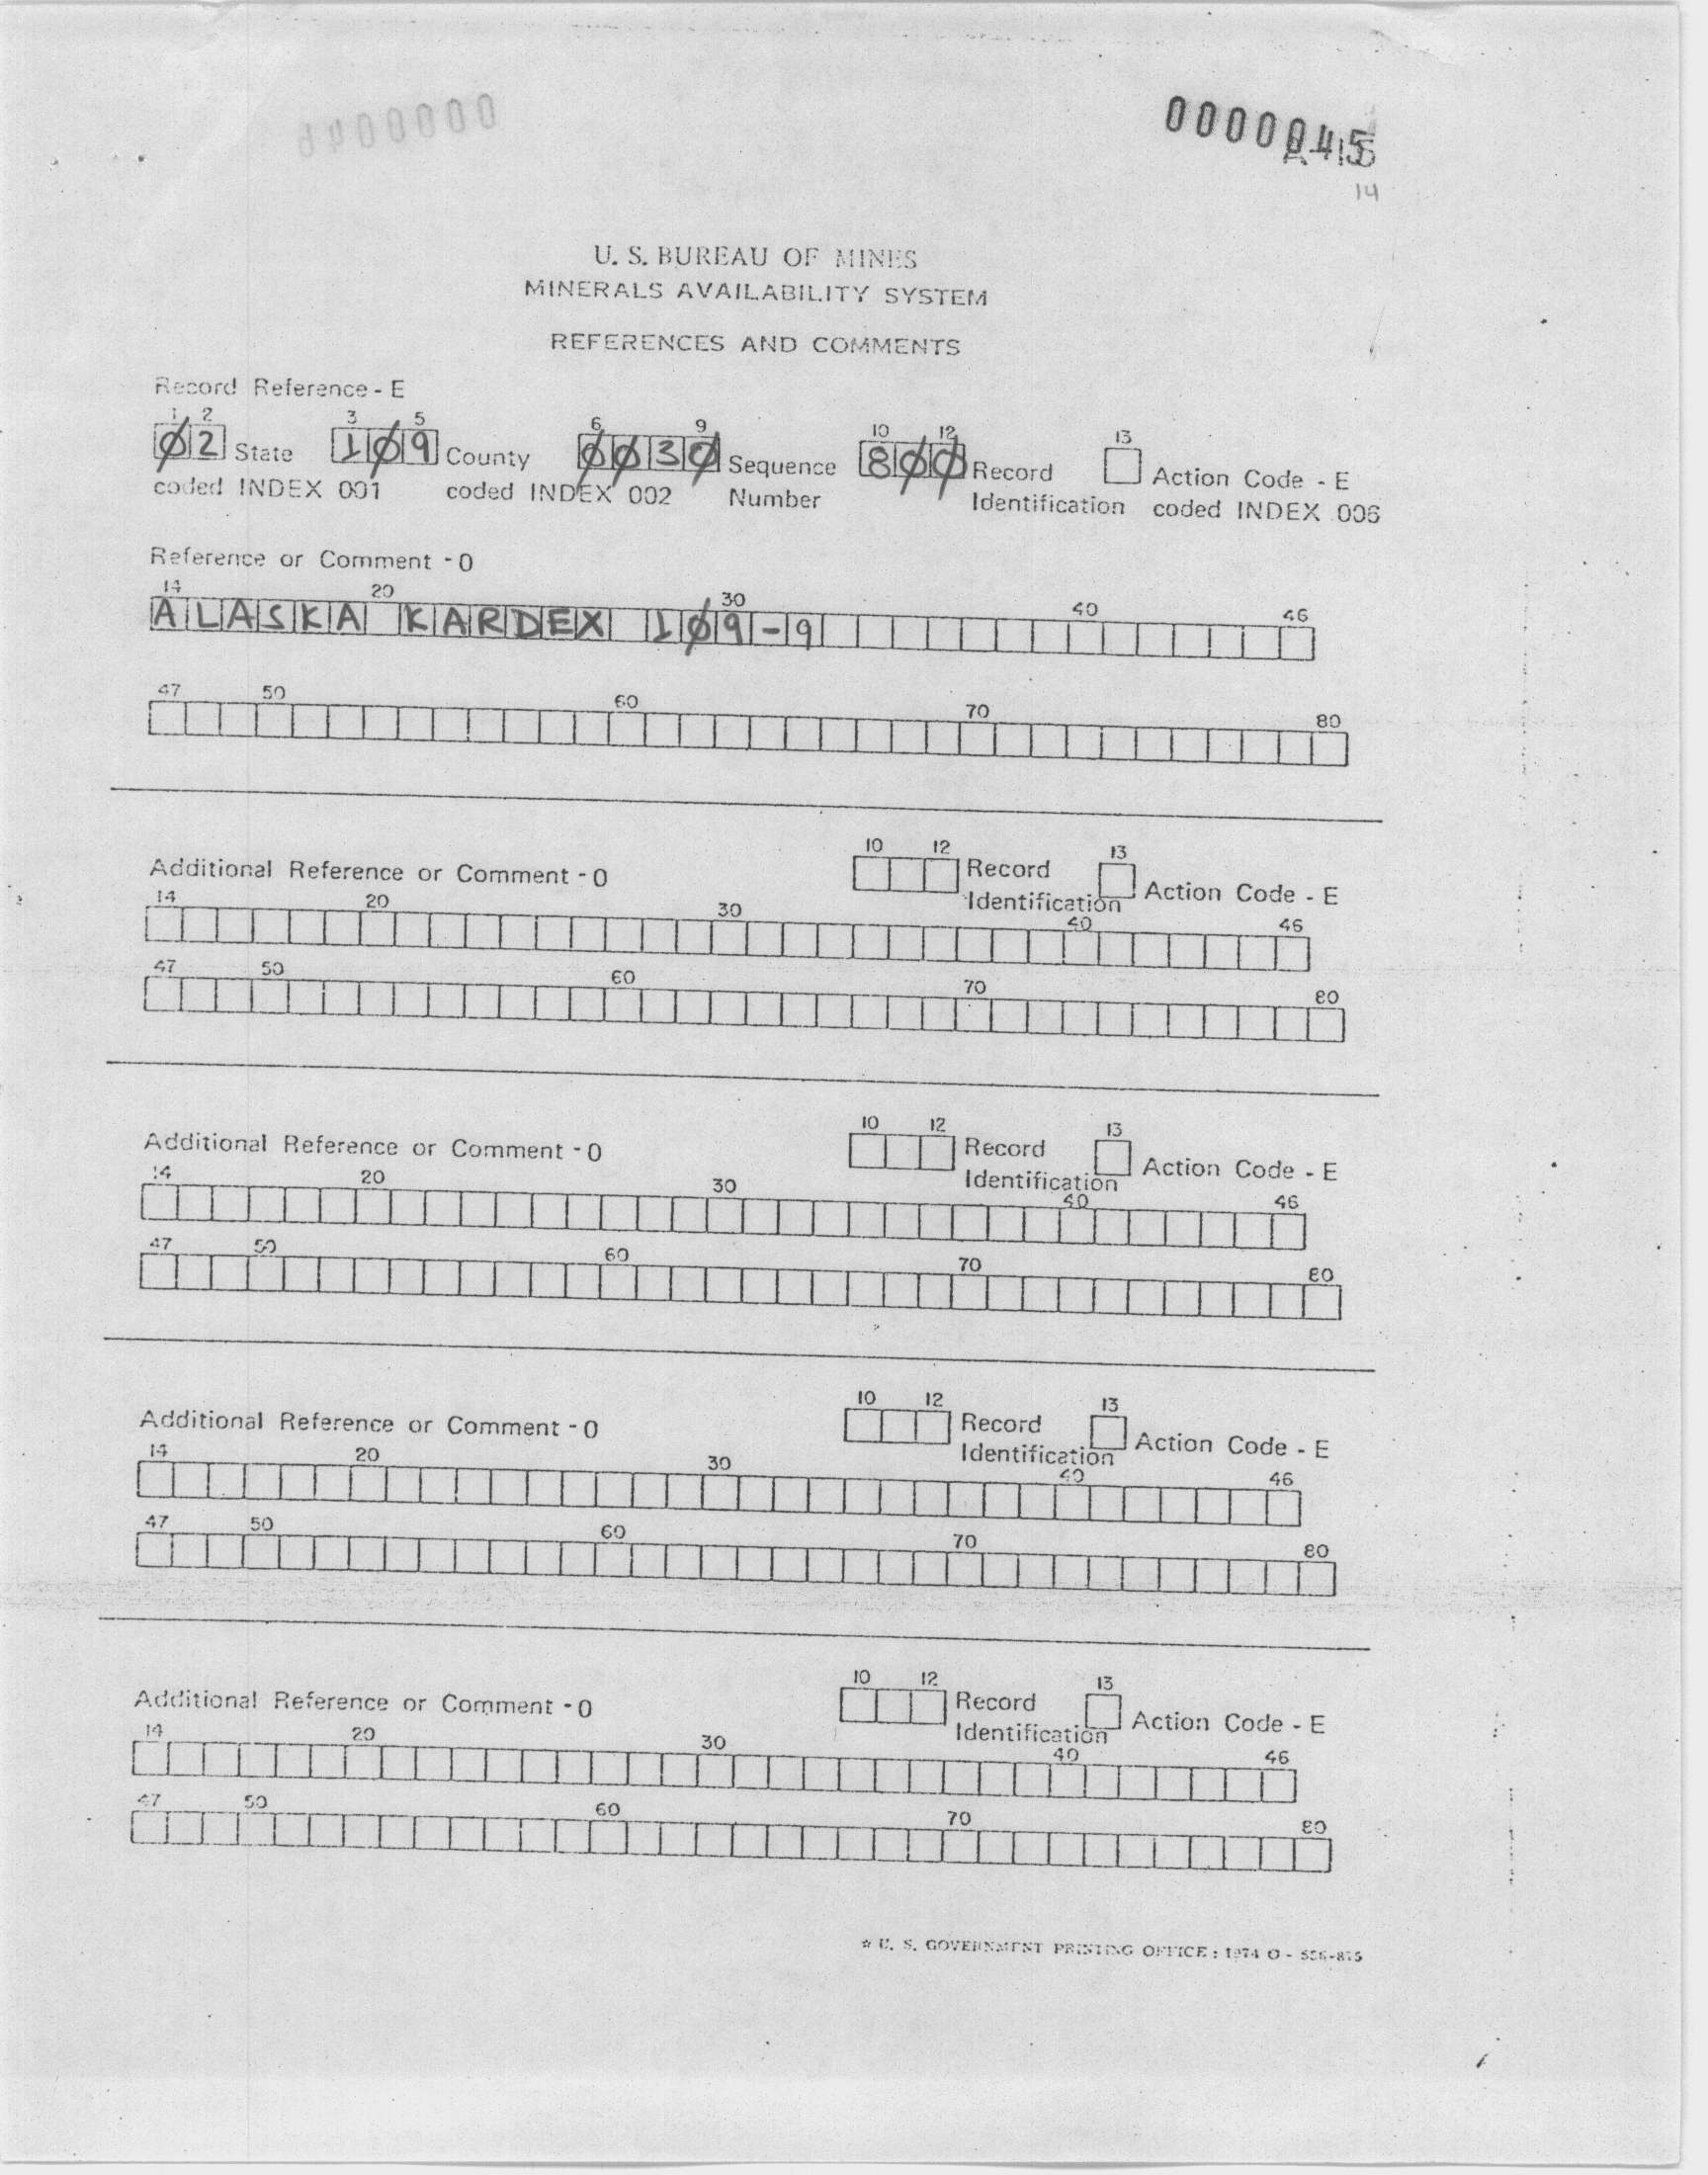 0000045
14
U. S. BUREAU OF MINES
MINERALS AVAILABILITY SYSTEM
REFERENCES AND COMMENTS
Record Reference - E
1 2 3 5 6 9 10 12 13
Ø2 State 1Ø9 County ØØ3Ø Sequence 8ØØ Record Action Code - E
coded INDEX 001 coded INDEX 002 Number Identification coded INDEX 006
Reference or Comment - O
14 20 30 40 46
ALASKA KARDEX 1Ø9-9
47 50 60 70 80
10 12 13
Additional Reference or Comment - O Record Action Code - E
Identification
14 20 30 40 46
47 50 60 70 80
10 12 13
Additional Reference or Comment - O Record Action Code - E
Identification
14 20 30 40 46
47 50 60 70 80
10 12 13
Additional Reference or Comment - O Record Action Code - E
Identification
14 20 30 40 46
47 50 60 70 80
10 12 13
Additional Reference or Comment - O Record Action Code - E
Identification
14 20 30 40 46
47 50 60 70 80
☆ U. S. GOVERNMENT PRINTING OFFICE : 1974 O -